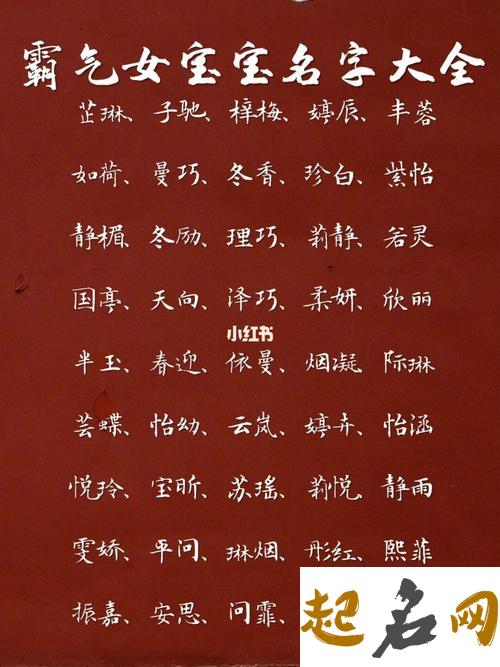 霸气女宝宝名字大全
芷琳、子驰、梓梅、婷辰、丰蓉
如荷、曼巧、冬香、珍白、紫怡
静楣、冬励、理巧、莉静、若灵
国亭、天向、泽巧、柔妍、欣丽
小红书
半玉、春迎、依曼、烟凝、际琳
芸蝶、怡幼、云岚、婷卉、怡涵
悦玲、宝昕、苏瑶、莉悦、静雨
雯娇、平问、琳烟、彤红、熙菲
振嘉、安思、问霏、
起名网